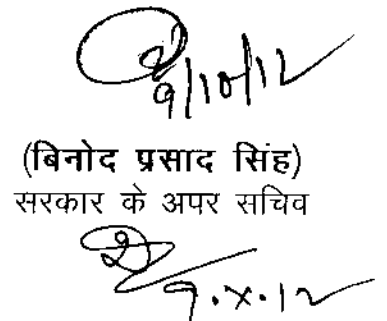 9/10/12
(बिनोद प्रसाद सिंह)
सरकार के अपर सचिव
9.X.12